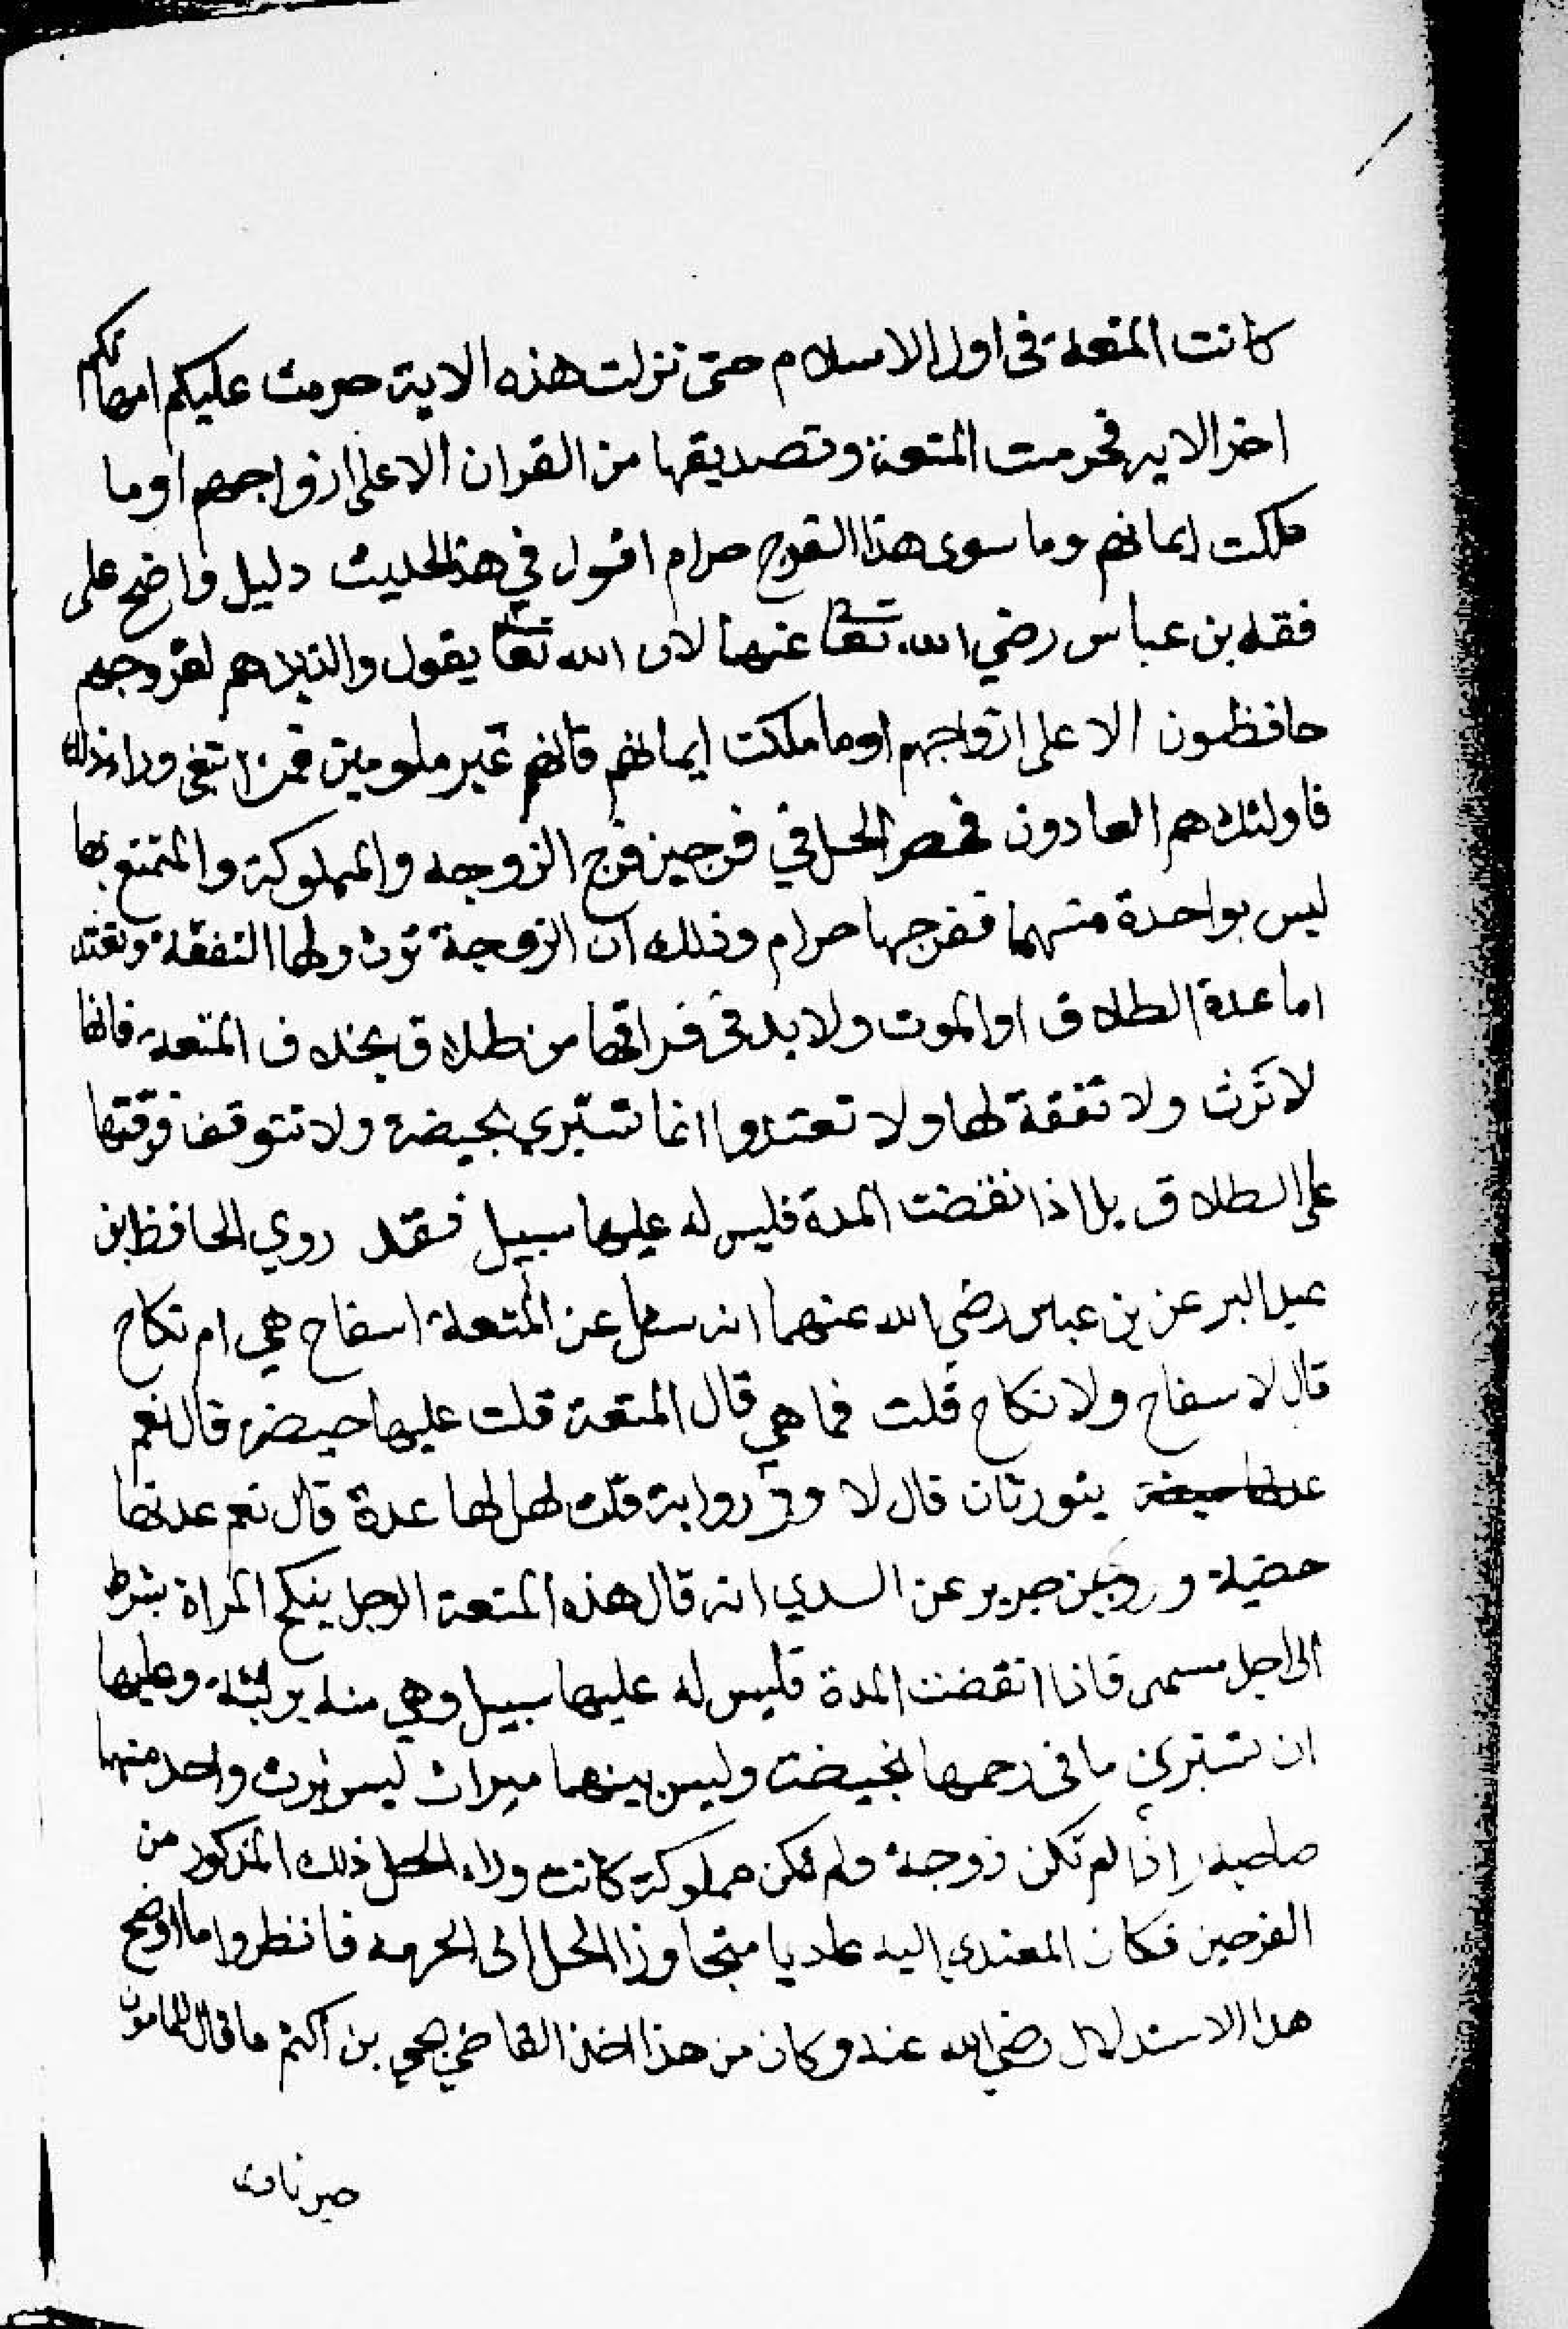 كانت المتعة في اول الاسلام حتى نزلت هذه الاية حرمت عليكم امهاتكم
اخر الايه فحرمت المتعة وتصديقها من القران الا على ازواجهم او ما
ملكت ايمانهم وما سوى هذا الفرج حرام اقول في هذا الحديث دليل واضح على
فقه بن عباس رضي الله تعا عنهما لان الله تعا يقول والذين هم لفروجهم
حافظون الا على ازواجهم او ما ملكت ايمانهم فانهم غير ملومين فمن ابتغى وراء ذلك
فاولئك هم العادون فحصر الحل في فرجين فرج الزوجه والمملوكة والمتمتع بها
ليس بواحدة منهما ففرجها حرام وذلك ان الزوجة ترث ولها النفقة وتعتد
اما عدة الطلاق او الموت ولا بد في فراقها من طلاق بخلاف المتعة فانها
لا ترث ولا نفقة لها ولا تعتد وانما تستبري بحيضة ولا تتوقف فرقتها
على الطلاق بل اذا نقضت المدة فليس له عليها سبيل فقد روي الحافظ بن
عبد البر عن بن عباس رضي الله عنهما انه سئل عن المتعة اسفاح هي ام نكاح
قال لا سفاح ولا نكاح قلت فما هي قال المتعة قلت عليها حيضة قال نعم
عدتها حيضة يتورثان قال لا وفي رواية قلت هل لها عدة قال نعم عدتها
حضية وروي بن جرير عن السدي انه قال هذه المتعة الرجل ينكح المراة بشرط
الى اجل مسمى فاذا انقضت المدة فليس له عليها سبيل وهي منه بريئة وعليها
ان تستبري ما في رحمها بحيضت وليس بينهما ميراث ليس يرث واحد منهما
صاحبه اذا لم تكن زوجة ولم تكن مملوكة كانت وراء الحل ذلك المذكور من
الفرجين فكان المعتدي اليه عاديا متجاوزا الحل الى الحرمه فانظروا ما اوضح
هذا الاستدلال رضي الله عنه وكان من هذا اخذ القاضي يحيى بن اكثم ما قال للمامون
حين نادى